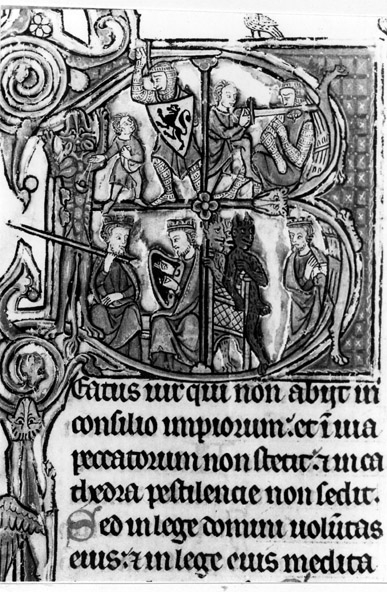 Beatus uir qui non abijt in
consilio impiorum: et ī uia
peccatorum non stetit: ⁊ in ca
thedra pestilencie non sedit.
Sed in lege domini uolūtas
eius: ⁊ in lege eius medita